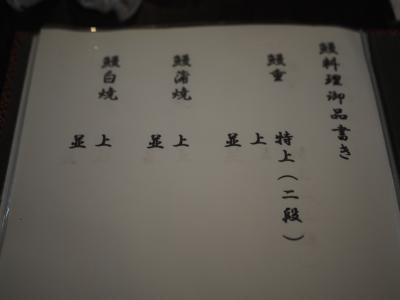 鰻料理御品書き
鰻重
特上(二段)
上
並
鰻蒲焼
上
並
鰻白焼
上
並